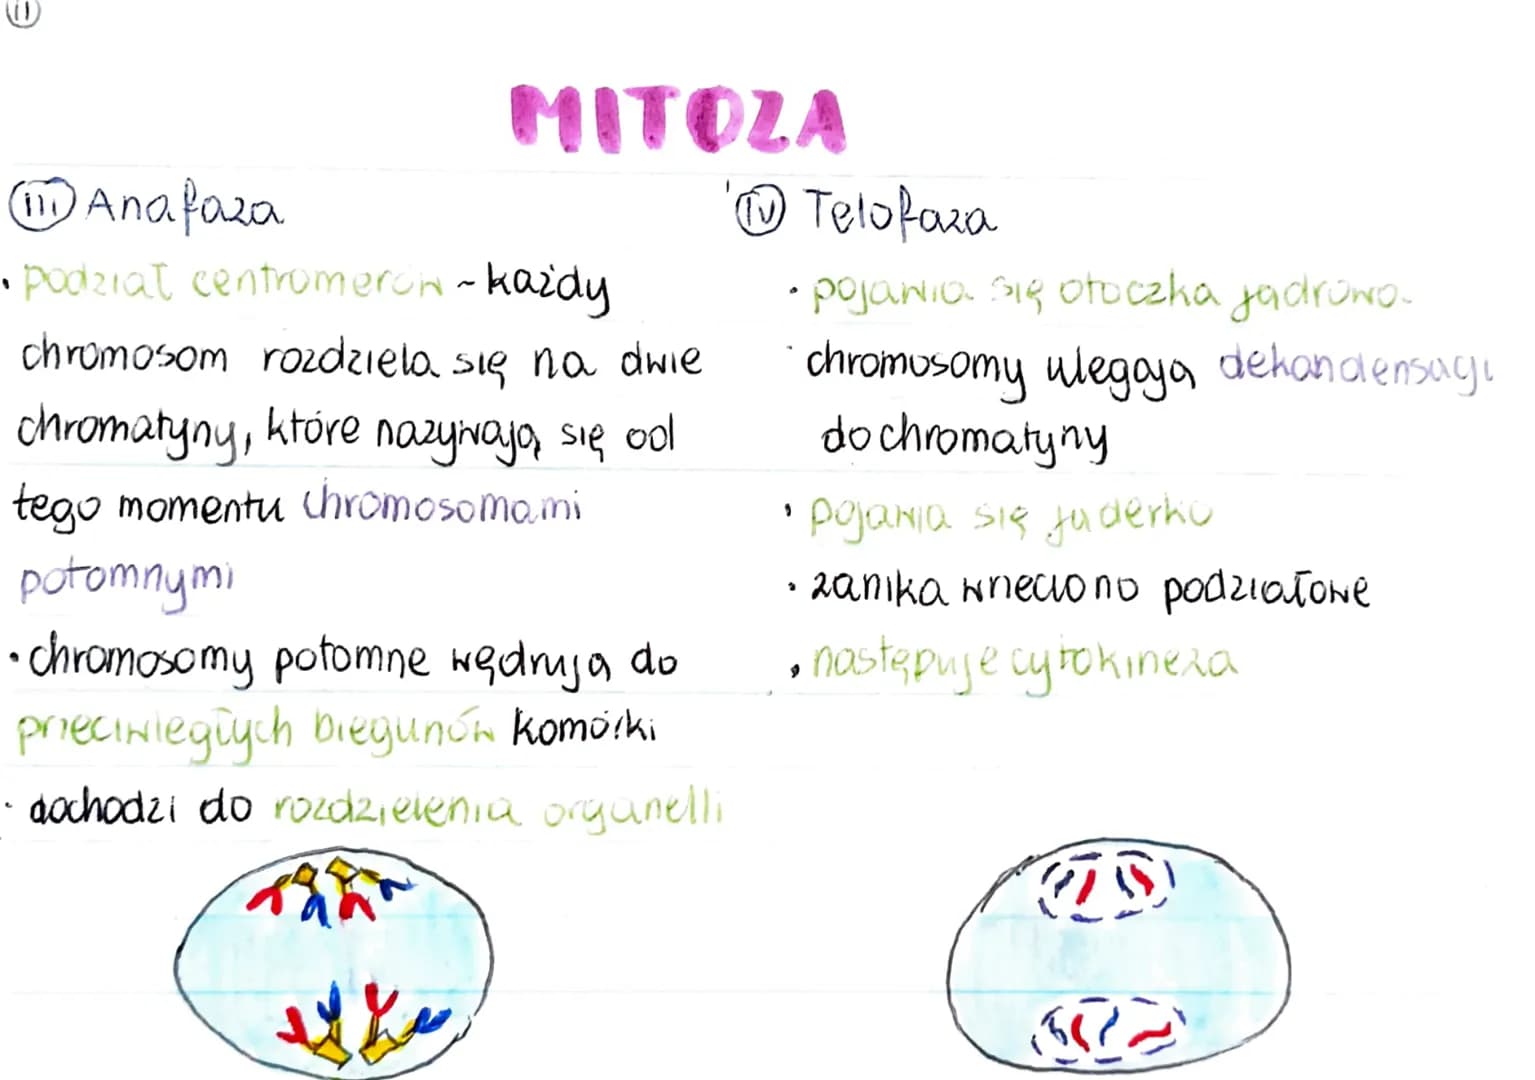 (ii)
MITOZA
(iii) Anafaza
• podział centromerów ~ każdy
chromosom rozdziela się na dwie
chromatyny, które nazywają się od
tego momentu chromosomami
potomnymi
• chromosomy potomne wędrują do
przeciwległych biegunów komórki
• dochodzi do rozdzielenia organelli
(iv) Telofaza
• pojawia się otoczka jądrowa
• chromosomy ulegają dekondensacji
do chromatyny
• pojawia się jąderko
• zanika wrzeciono podziałowe
• następuje cytokineza